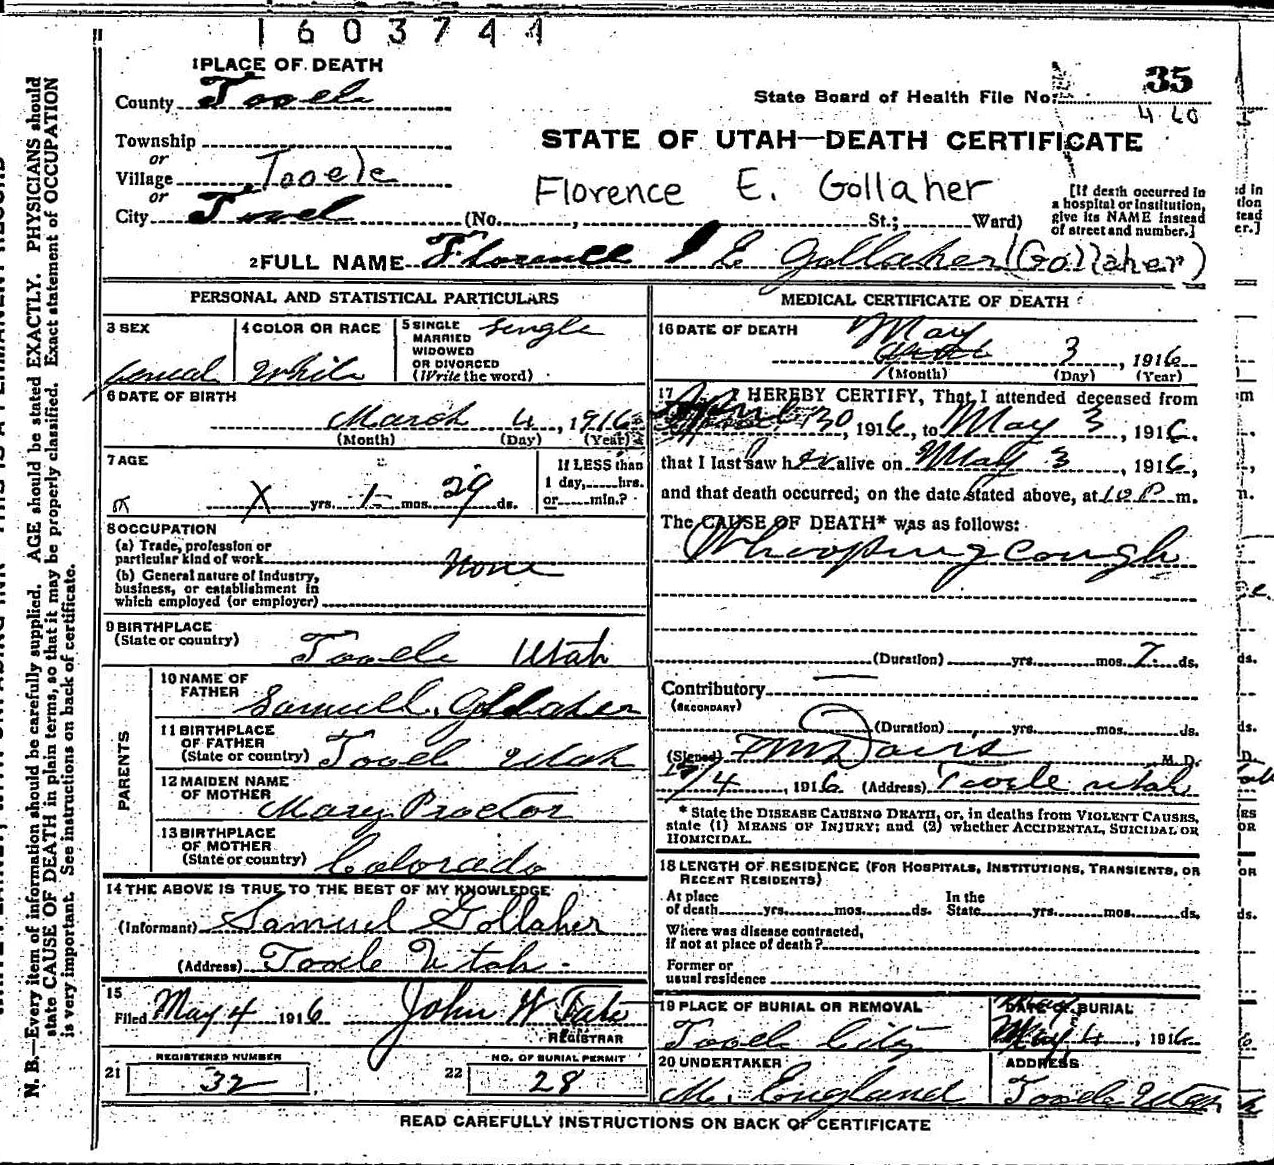 1603744
1 PLACE OF DEATH
County Tooele
State Board of Health File No. 35
4 60
Township
or
Village Tooele
or
City Tooel (No. , St.; Ward)
STATE OF UTAH—DEATH CERTIFICATE
Florence E. Gollaher
[If death occurred in
a hospital or institution,
give its NAME instead
of street and number.]
2 FULL NAME Florence E Gollaher (Gollaher)
PERSONAL AND STATISTICAL PARTICULARS
3 SEX
femal
4 COLOR OR RACE
White
5 SINGLE
MARRIED
WIDOWED
OR DIVORCED
(Write the word)
single
6 DATE OF BIRTH
March 4, 1916
(Month) (Day) (Year)
7 AGE
X yrs. 1 mos. 29 ds.
If LESS than
1 day, hrs.
or min.?
8 OCCUPATION
(a) Trade, profession or
particular kind of work None
(b) General nature of Industry,
business, or establishment in
which employed (or employer)
9 BIRTHPLACE
(State or country) Tooele Utah
PARENTS
10 NAME OF
FATHER Samuell. Gollaher
11 BIRTHPLACE
OF FATHER
(State or country) Tooele Utah
12 MAIDEN NAME
OF MOTHER Mary Proctor
13 BIRTHPLACE
OF MOTHER
(State or country) Colorado
14 THE ABOVE IS TRUE TO THE BEST OF MY KNOWLEDGE
(Informant) Samuel Gollaher
(Address) Tooele Utah.
15
Filed May 4 1916 John W Tate
REGISTRAR
REGISTERED NUMBER
21 32
NO. OF BURIAL PERMIT
22 28
MEDICAL CERTIFICATE OF DEATH
16 DATE OF DEATH
May 3, 1916
(Month) (Day) (Year)
17 I HEREBY CERTIFY, That I attended deceased from
April 30, 1916, to May 3, 1916.
that I last saw her alive on May 3, 1916,
and that death occurred, on the date stated above, at 10 P m.
The CAUSE OF DEATH* was as follows:
Whooping cough
(Duration) yrs. mos. 7 ds.
Contributory
(SECONDARY)
(Duration) yrs. mos. ds.
(Signed) Davis M. D.
5/4, 1916 (Address) Tooele Utah
* State the DISEASE CAUSING DEATH, or, in deaths from VIOLENT CAUSES,
state (1) MEANS OF INJURY; and (2) whether ACCIDENTAL, SUICIDAL OR
HOMICIDAL.
18 LENGTH OF RESIDENCE (FOR HOSPITALS, INSTITUTIONS, TRANSIENTS, OR
RECENT RESIDENTS)
At place In the
of death yrs. mos. ds. State yrs. mos. ds.
Where was disease contracted,
if not at place of death?
Former or
usual residence
19 PLACE OF BURIAL OR REMOVAL
Tooele City
DATE OF BURIAL
May 4, 1916
20 UNDERTAKER
M. England
ADDRESS
Tooele Utah
READ CAREFULLY INSTRUCTIONS ON BACK OF CERTIFICATE
N. B.—Every item of information should be carefully supplied. AGE should be stated EXACTLY. PHYSICIANS should
state CAUSE OF DEATH in plain terms, so that it may be properly classified. Exact statement of OCCUPATION
is very important. See instructions on back of certificate.